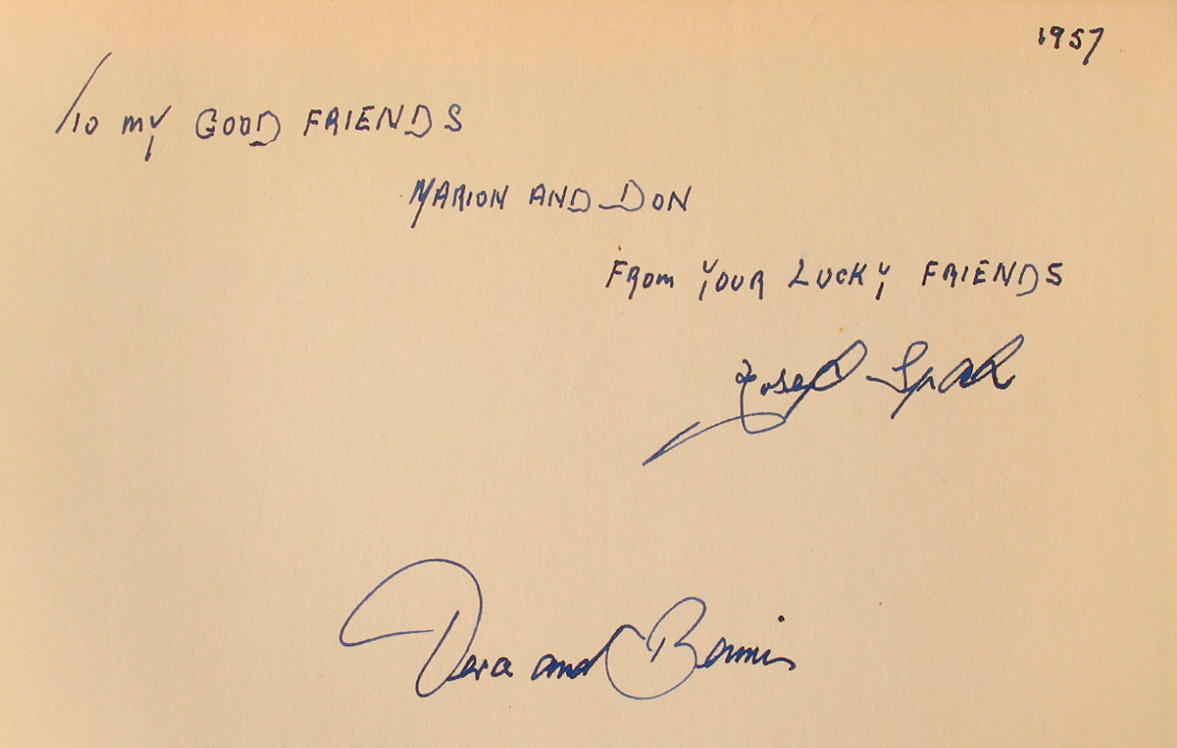 1957
To my GOOD FRIENDS
MARION AND DON
FROM YOUR LUCKY FRIENDS
Joseph Spah
Vera and Bernie